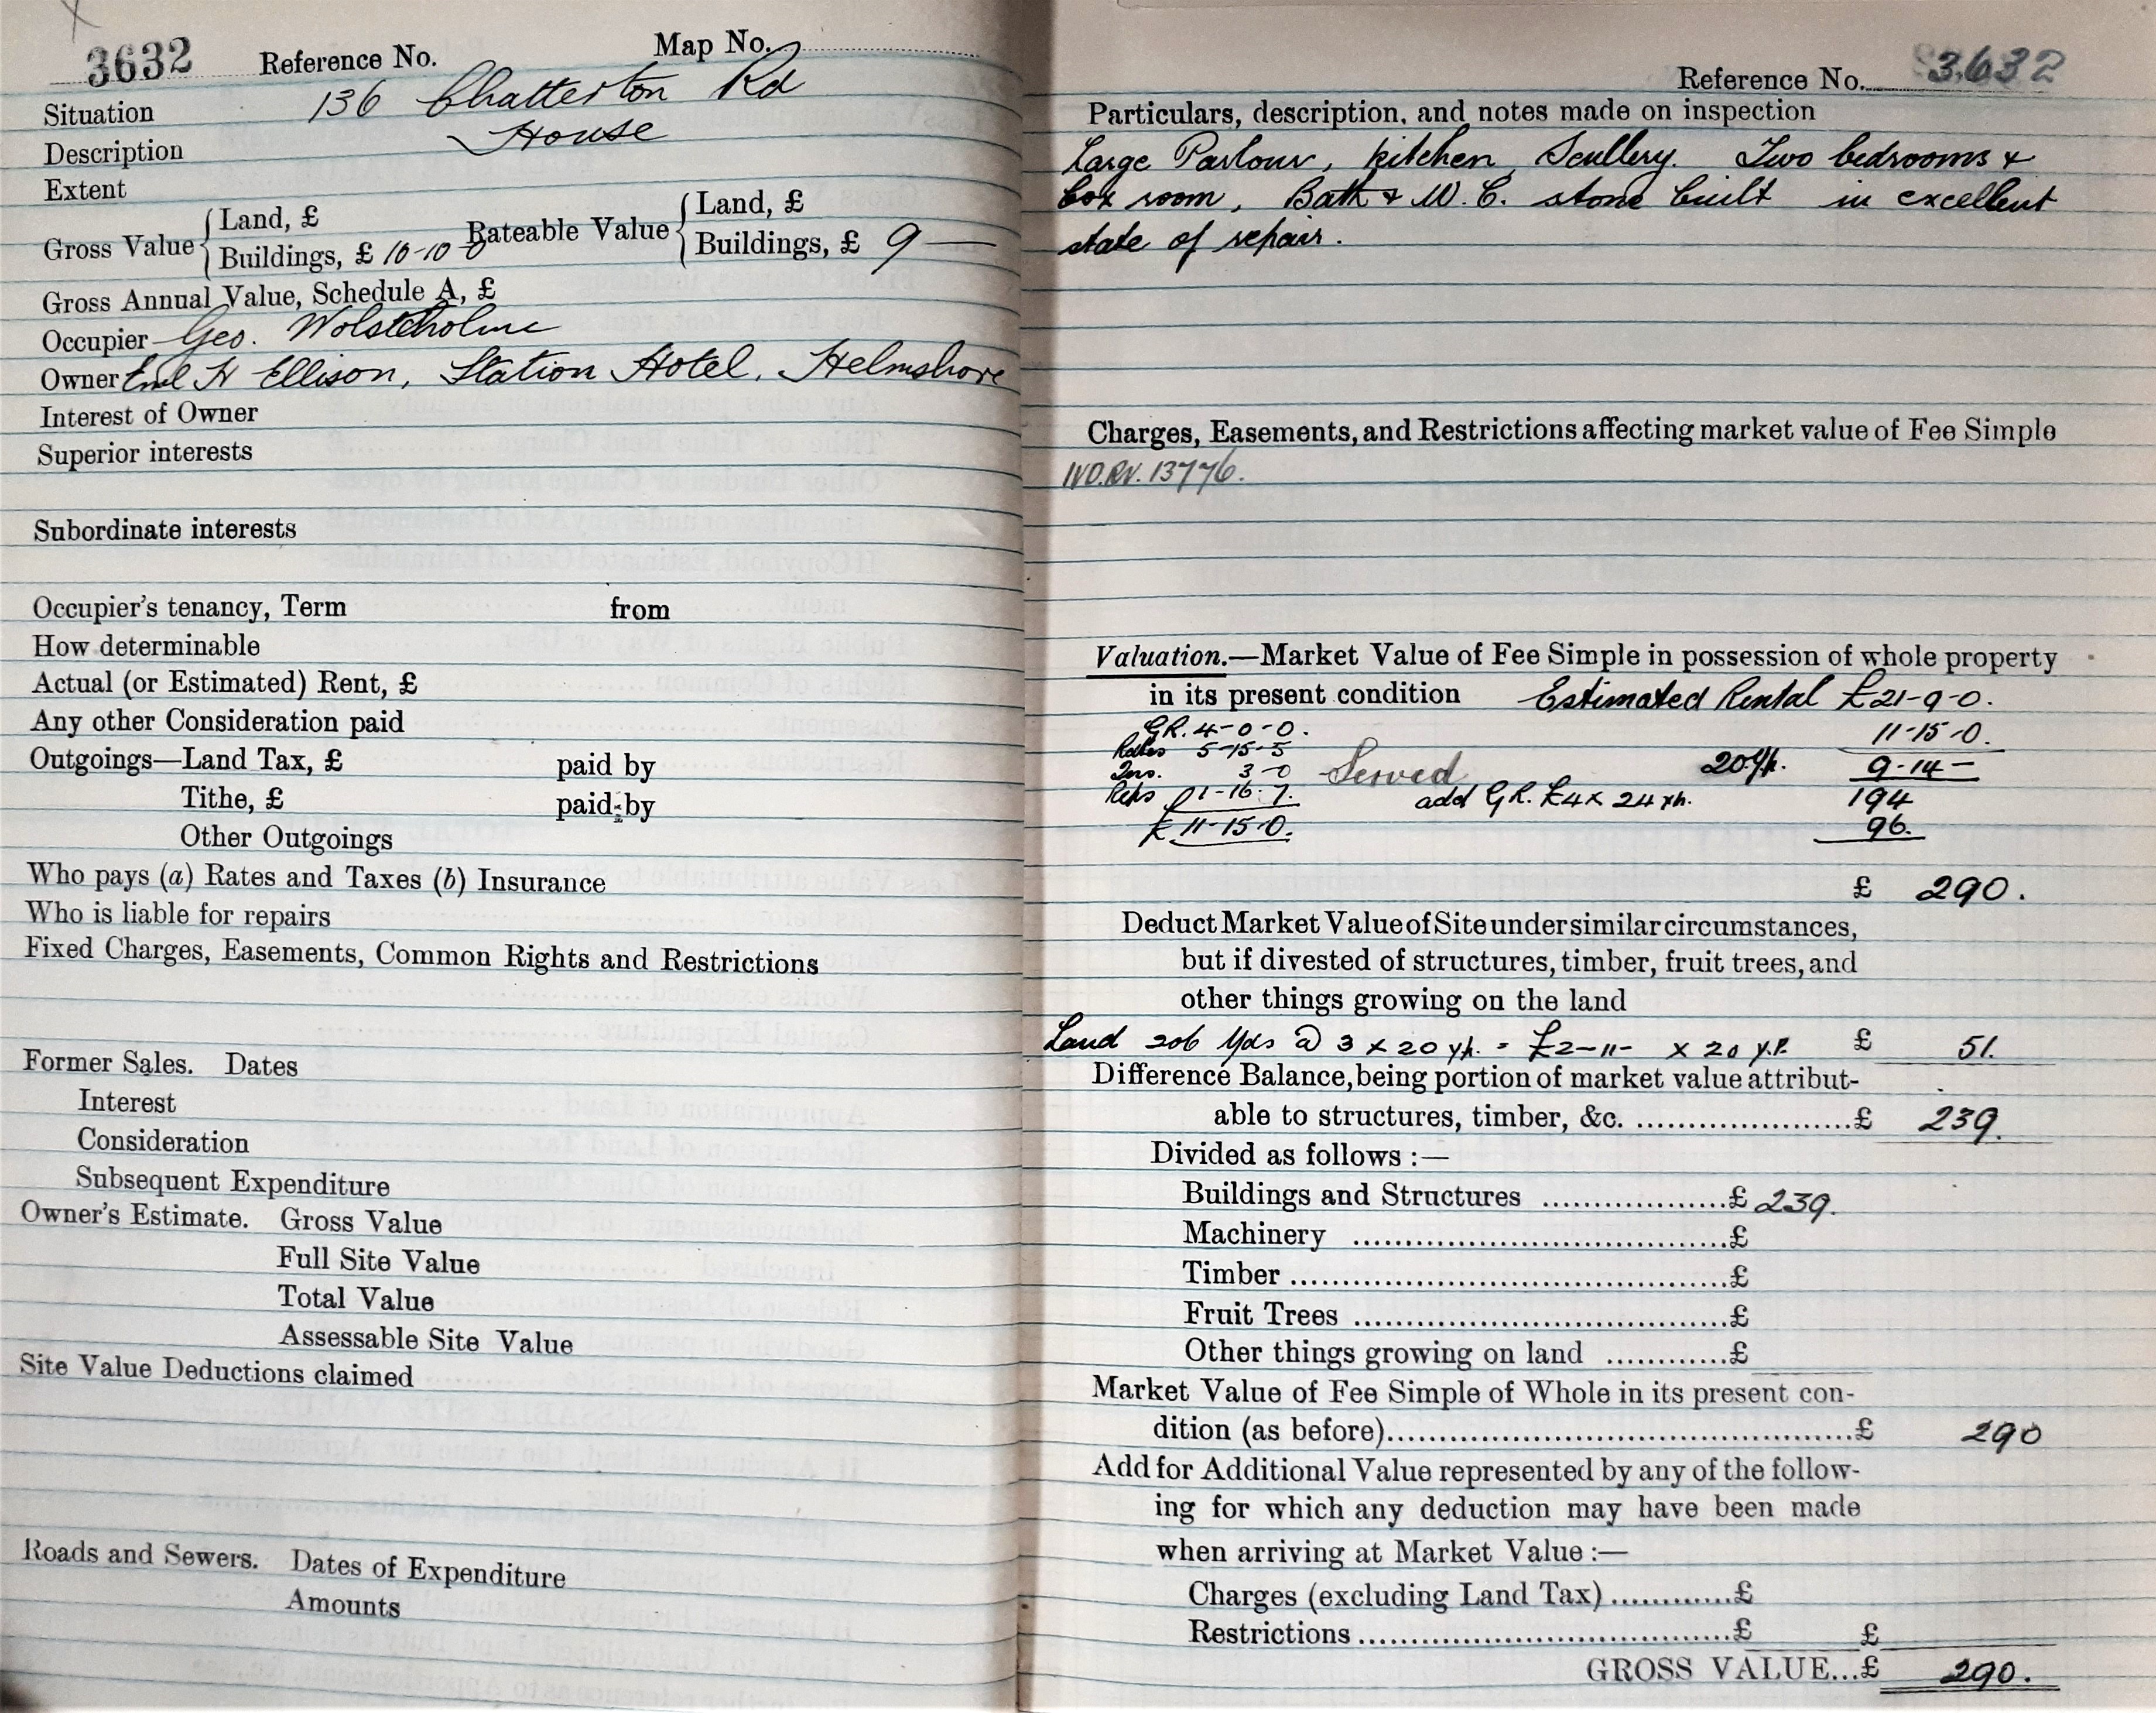 3632 Reference No. Map No.
Situation 136 Chatterton Rd
Description House
Extent
Gross Value { Land, £ Rateable Value { Land, £
Buildings, £ 10-10-0 Buildings, £ 9—
Gross Annual Value, Schedule A, £
Occupier Geo. Wolstenholme
Owner H Ellison, Station Hotel, Helmshore
Interest of Owner
Superior interests
Subordinate interests
Occupier's tenancy, Term from
How determinable
Actual (or Estimated) Rent, £
Any other Consideration paid
Outgoings—Land Tax, £ paid by
Tithe, £ paid by
Other Outgoings
Who pays (a) Rates and Taxes (b) Insurance
Who is liable for repairs
Fixed Charges, Easements, Common Rights and Restrictions
Former Sales. Dates
Interest
Consideration
Subsequent Expenditure
Owner's Estimate. Gross Value
Full Site Value
Total Value
Assessable Site Value
Site Value Deductions claimed
Roads and Sewers. Dates of Expenditure
Amounts
Reference No. 3632
Particulars, description, and notes made on inspection
Large Parlour, kitchen, Scullery. Two bedrooms &
box room, Bath & W.C. stone built in excellent
state of repair.
Charges, Easements, and Restrictions affecting market value of Fee Simple
13776.
Valuation.—Market Value of Fee Simple in possession of whole property
in its present condition Estimated Rental £21-9-0.
G.R. 4-0-0. 11-15-0.
Rates 5-15-5
Ins. 3-0 Served 20 Y.P. 9-14—
Reps 1-16-7. add G.R. £4 x 24 Y.P. 194
£11-15-0. 96.
£ 290.
Deduct Market Value of Site under similar circumstances,
but if divested of structures, timber, fruit trees, and
other things growing on the land
Land 206 Yds @ 3 x 20 Y.P. = £2-11- x 20 Y.P. £ 51.
Difference Balance, being portion of market value attribut-
able to structures, timber, &c. ....................£ 239.
Divided as follows :—
Buildings and Structures ..................£ 239.
Machinery ....................................£
Timber ..........................................£
Fruit Trees ....................................£
Other things growing on land ............£
Market Value of Fee Simple of Whole in its present con-
dition (as before)..............................................£ 290
Add for Additional Value represented by any of the follow-
ing for which any deduction may have been made
when arriving at Market Value :—
Charges (excluding Land Tax) ............£
Restrictions ....................................£ £
GROSS VALUE...£ 290.